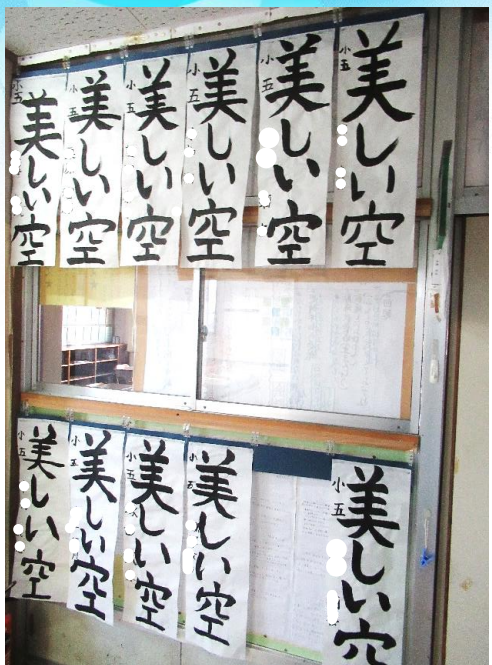 美しい空
小五
美しい空
小五
美しい空
小五
美しい空
小五
美しい空
小五
美しい空
小五
美しい空
小五
美しい空
小五
美しい空
小五
美しい空
小五
美しい空
小五